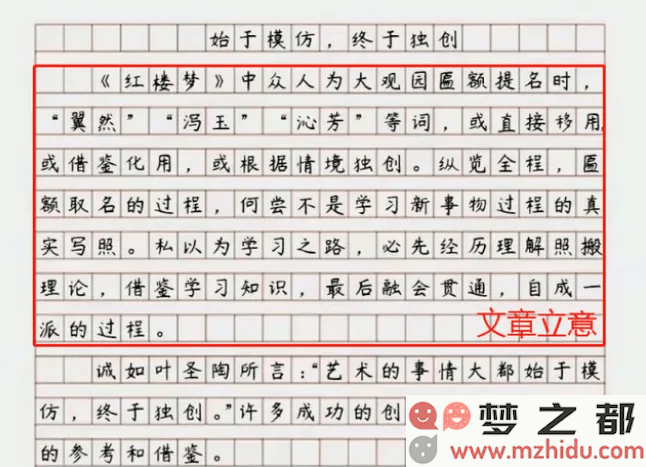 始于模仿，终于独创
《红楼梦》中众人为大观园匾额提名时，
“翼然”“泻玉”“沁芳”等词，或直接移用
或借鉴化用，或根据情境独创。纵览全程，匾
额取名的过程，何尝不是学习新事物过程的真
实写照。私以为学习之路，必先经历理解照搬
理论，借鉴学习知识，最后融会贯通，自成一
派的过程。
文章立意
诚如叶圣陶所言：“艺术的事情大都始于模
仿，终于独创。”许多成功的创
的参考和借鉴。
梦之都
www.mzhidu.com